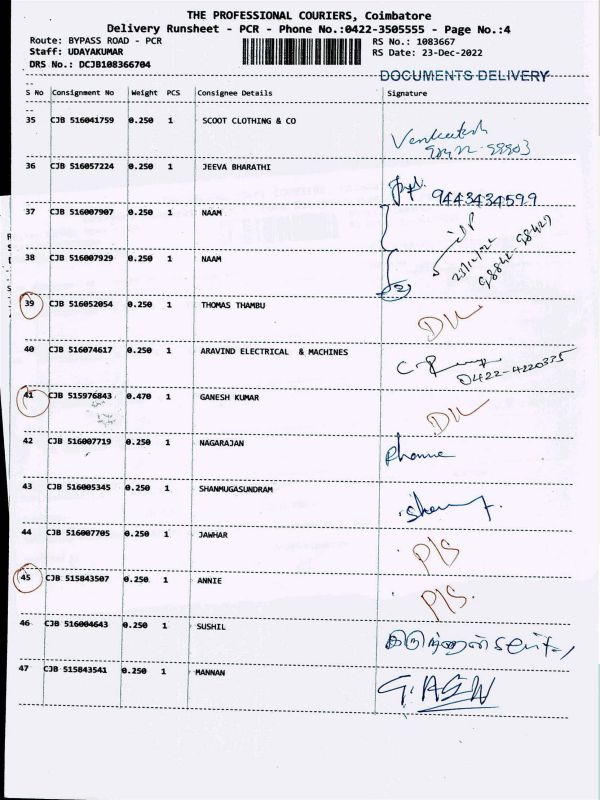 THE PROFESSIONAL COURIERS, Coimbatore
Delivery Runsheet - PCR - Phone No.:0422-3505555 - Page No.:4
Route: BYPASS ROAD - PCR RS No.: 1083667
Staff: UDAYAKUMAR RS Date: 23-Dec-2022
DRS No.: DCJB108366704
DOCUMENTS DELIVERY
S No Consignment No Weight PCS Consignee Details Signature
35 CJB 516041759 0.250 1 SCOOT CLOTHING & CO
Venkatesh
36 CJB 516057224 0.250 1 JEEVA BHARATHI
9443434599
37 CJB 516007907 0.250 1 NAAM
38 CJB 516007929 0.250 1 NAAM
23/12/22
98842-98429
2
39 CJB 516052054 0.250 1 THOMAS THAMBU
DL
40 CJB 516074617 0.250 1 ARAVIND ELECTRICAL & MACHINES
0422-4220375
41 CJB 515976843 0.470 1 GANESH KUMAR
DL
42 CJB 516007719 0.250 1 NAGARAJAN
Phone
43 CJB 516005345 0.250 1 SHANMUGASUNDRAM
44 CJB 516007705 0.250 1 JAWHAR
P/S
45 CJB 515843507 0.250 1 ANNIE
P/S.
46 CJB 516004643 0.250 1 SUSHIL
47 CJB 515843541 0.250 1 MANNAN